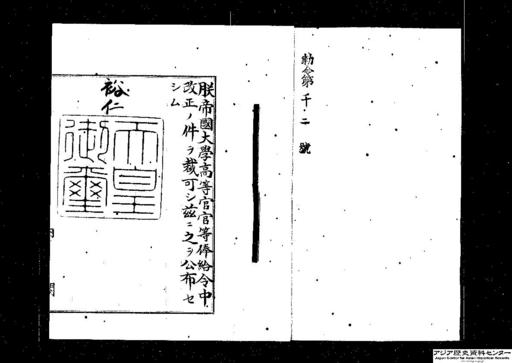 勅令第千二號
朕帝國大學高等官官等俸給令中
改正ノ件ヲ裁可シ茲ニ之ヲ公布セ
シム
裕仁
天皇
御璽
アジア歴史資料センター
Japan Center for Asian Historical Records